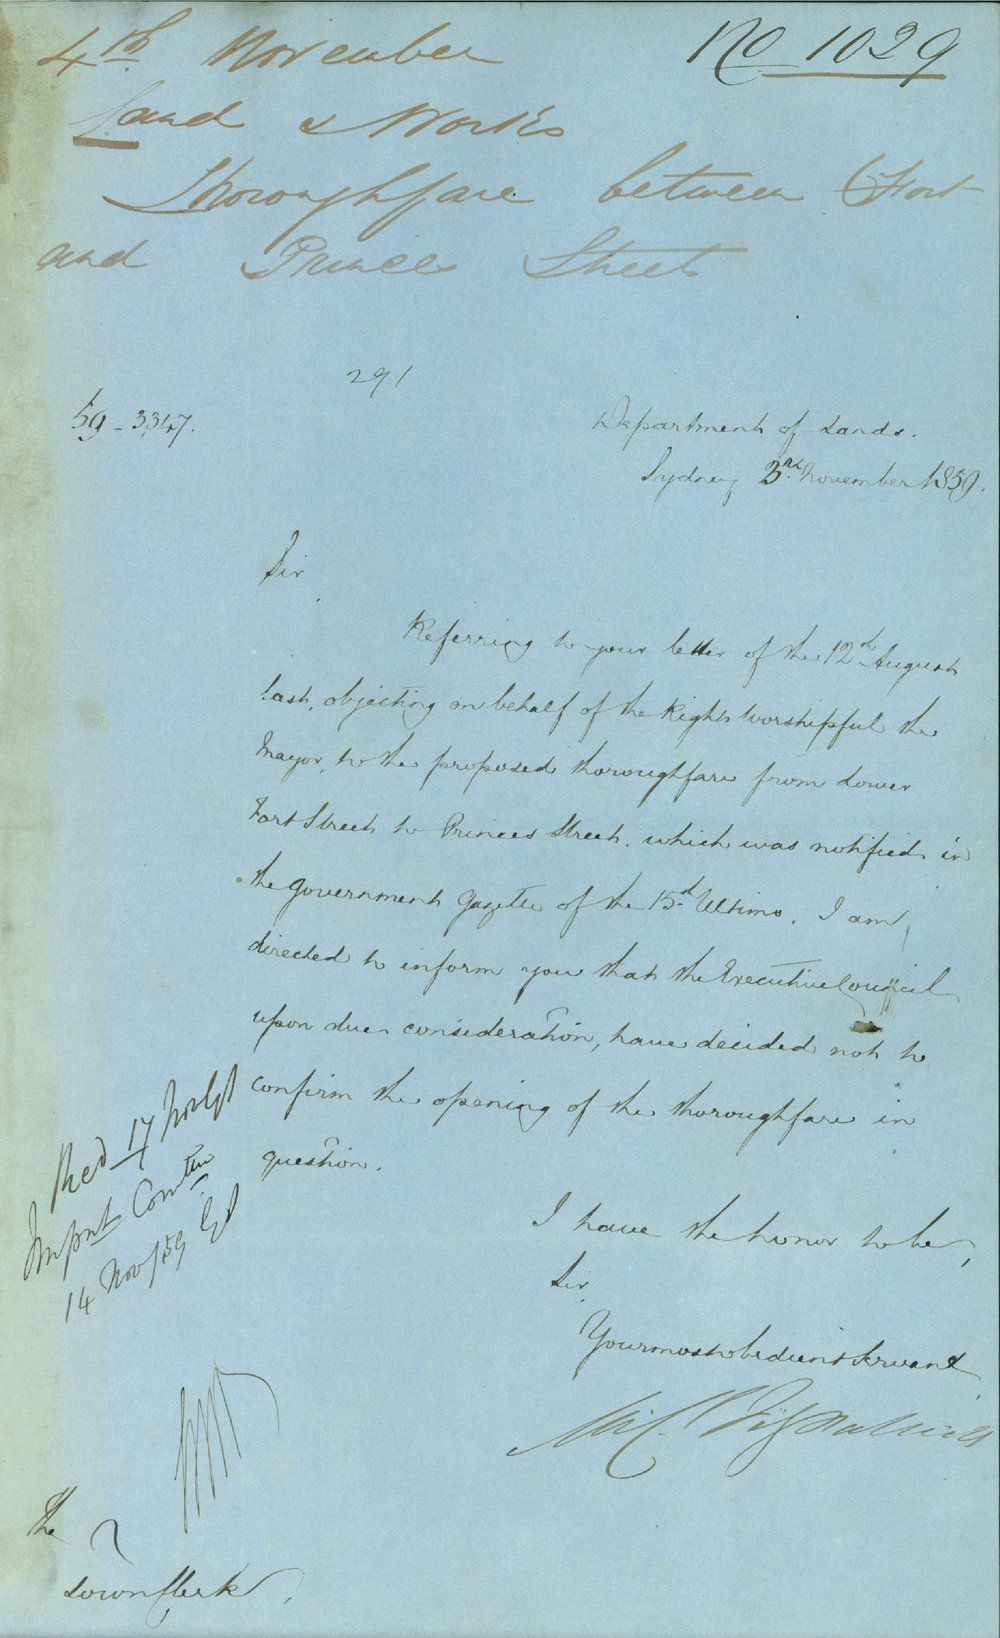 4th November
No 1029
Land & Works
Thoroughfare between Fort
and Princes Street
291
59-3347.
Department of Lands.
Sydney 3rd November 1859.
Sir
Referring to your letter of the 12th August
last, objecting on behalf of the Right Worshipful the
Mayor, to the proposed thoroughfare from Lower
Fort Street to Princes Street, which was notified in
the Government Gazette of the 15th Ultimo, I am,
directed to inform you that the Executive Council
upon due consideration, have decided not to
confirm the opening of the thoroughfare in
question.
I have the honor to be,
Sir,
Your most obedient Servant
Mic. Fitzpatrick
Recd 17
Impt Comtee
14 Nov/59
The
Town Clerk,